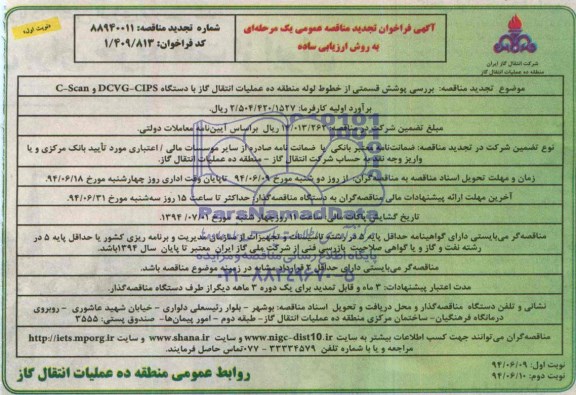 نوبت اول
آگهی فراخوان تجدید مناقصه عمومی یک مرحله‌ای
به روش ارزیابی ساده
شماره تجدید مناقصه: ۸۸۹۴۰۰۱۱
کد فراخوان: ۱/۴۰۹/۸۱۳
شرکت انتقال گاز ایران
منطقه ده عملیات انتقال گاز
موضوع تجدید مناقصه: بررسی پوشش قسمتی از خطوط لوله منطقه ده عملیات انتقال گاز با دستگاه DCVG-CIPS و C-Scan
برآورد اولیه کارفرما: ۲/۵۰۴/۴۲۰/۱۵۲۷ ریال.
مبلغ تضمین شرکت در مناقصه: ریال براساس آیین‌نامه معاملات دولتی.
نوع تضمین شرکت در تجدید مناقصه: ضمانت‌نامه معتبر بانکی یا ضمانت نامه صادره از سایر موسسات مالی / اعتباری مورد تأیید بانک مرکزی و یا
واریز وجه نقد به حساب شرکت انتقال گاز – منطقه ده عملیات انتقال گاز.
زمان و مهلت تحویل اسناد مناقصه به مناقصه‌گران: از روز دو شنبه مورخ ۹۴/۰۶/۰۹ تاپایان وقت اداری روز چهارشنبه مورخ ۹۴/۰۶/۱۸
آخرین مهلت ارائه پیشنهادات مالی مناقصه‌گران به دستگاه مناقصه‌گذار: حداکثر تا ساعت ۱۵ روز سه‌شنبه مورخ ۹۴/۰۶/۳۱
تاریخ گشایش روز چهار شنبه مورخ ۱۳۹۴/۰۷/۰۱
مناقصه‌گر می‌بایستی دارای گواهینامه حداقل پایه ۵ در رشته تاسیسات و تجهیزات از سازمان مدیریت و برنامه ریزی کشور یا حداقل پایه ۵ در
رشته نفت و گاز و یا گواهی صلاحیت بازرسی فنی از شرکت ملی گاز ایران معتبر تا پایان سال ۱۳۹۴باشد.
مناقصه‌گر می‌بایستی دارای حداقل ۲ قرارداد مشابه در زمینه موضوع مناقصه باشد.
مدت اعتبار پیشنهادات: ۳ ماه و قابل تمدید برای یک دوره ۳ ماهه دیگراز طرف دستگاه مناقصه‌گذار.
نشانی و تلفن دستگاه مناقصه‌گذار و محل دریافت و تحویل اسناد مناقصه: بوشهر – بلوار رئیسعلی دلواری – خیابان شهید عاشوری – روبروی
درمانگاه فرهنگیان– ساختمان مرکزی منطقه ده عملیات انتقال گاز– طبقه دوم – امور پیمان‌ها– صندوق پستی: ۳۵۵۵
مناقصه‌گران می‌توانند جهت کسب اطلاعات بیشتر به سایت www.nigc-dist10.ir و سایت www.shana.ir و سایت http://iets.mporg.ir
مراجعه و یا با شماره تلفن ۳۳۳۳۴۵۷۹ – ۰۷۷تماس حاصل فرمایند.
نوبت اول: ۹۴/۰۶/۰۹
نوبت دوم: ۹۴/۰۶/۱۰
روابط عمومی منطقه ده عملیات انتقال گاز
ParsNamadData
پایگاه اطلاع رسانی مناقصه و مزایده
۰۲۱-۸۸۳۴۹۶۷۰-۵